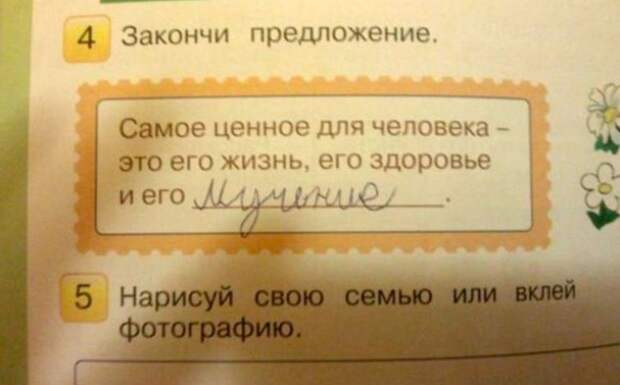 4 Закончи предложение.
Самое ценное для человека –
это его жизнь, его здоровье
и его мучение.
5 Нарисуй свою семью или вклей
фотографию.